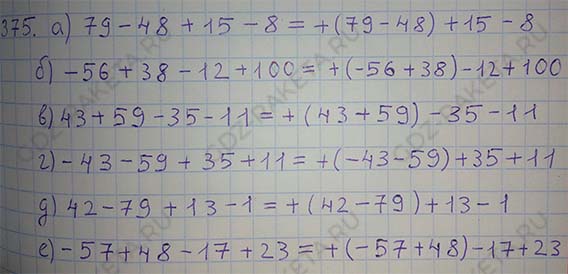 375. а) 79 - 48 + 15 - 8 = +(79 - 48) + 15 - 8
б) -56 + 38 - 12 + 100 = +(-56 + 38) - 12 + 100
в) 43 + 59 - 35 - 11 = +(43 + 59) - 35 - 11
г) -43 - 59 + 35 + 11 = +(-43 - 59) + 35 + 11
д) 42 - 79 + 13 - 1 = +(42 - 79) + 13 - 1
е) -57 + 48 - 17 + 23 = +(-57 + 48) - 17 + 23